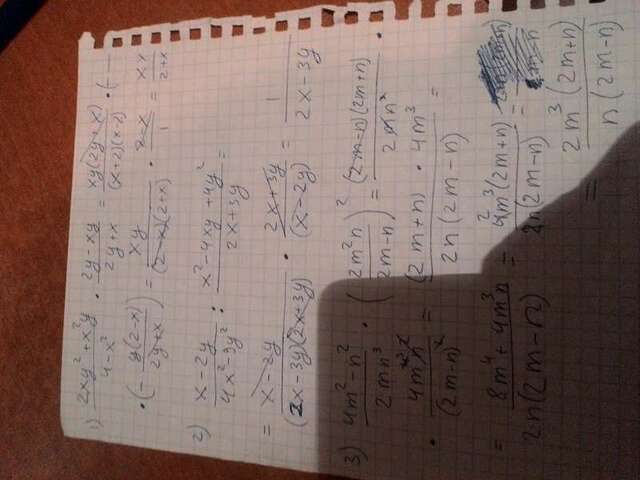 1) (2xy² + x²y)/(4 - x²) · (2y - xy)/(2y + x) = (xy(2y + x))/((x+2)(x-2)) · (-
· (- (y(2-x))/(2y+x)) = (xy)/((2-x)(2+x)) · (2-x)/1 = /(2+x)
2) (x - 2y)/(4x² - 9y²) : (x² - 4xy + 4y²)/(2x + 3y) =
= (x - 2y)/((2x - 3y)(2x + 3y)) · (2x + 3y)/(x - 2y) = 1/(2x - 3y)
3) (4m² - n²)/(2mn³) · ((2m²n)/(2m - n))² = ((2m - n)(2m + n))/(2mn³) ·
· (4m⁴n²)/(2m - n)² = ((2m + n) · 4m³)/(2n(2m - n)) =
= (8m⁴ + 4m³n)/(2n(2m - n)) = (4m³(2m + n))/(2n(2m - n)) =
= (2m³(2m + n))/(n(2m - n))